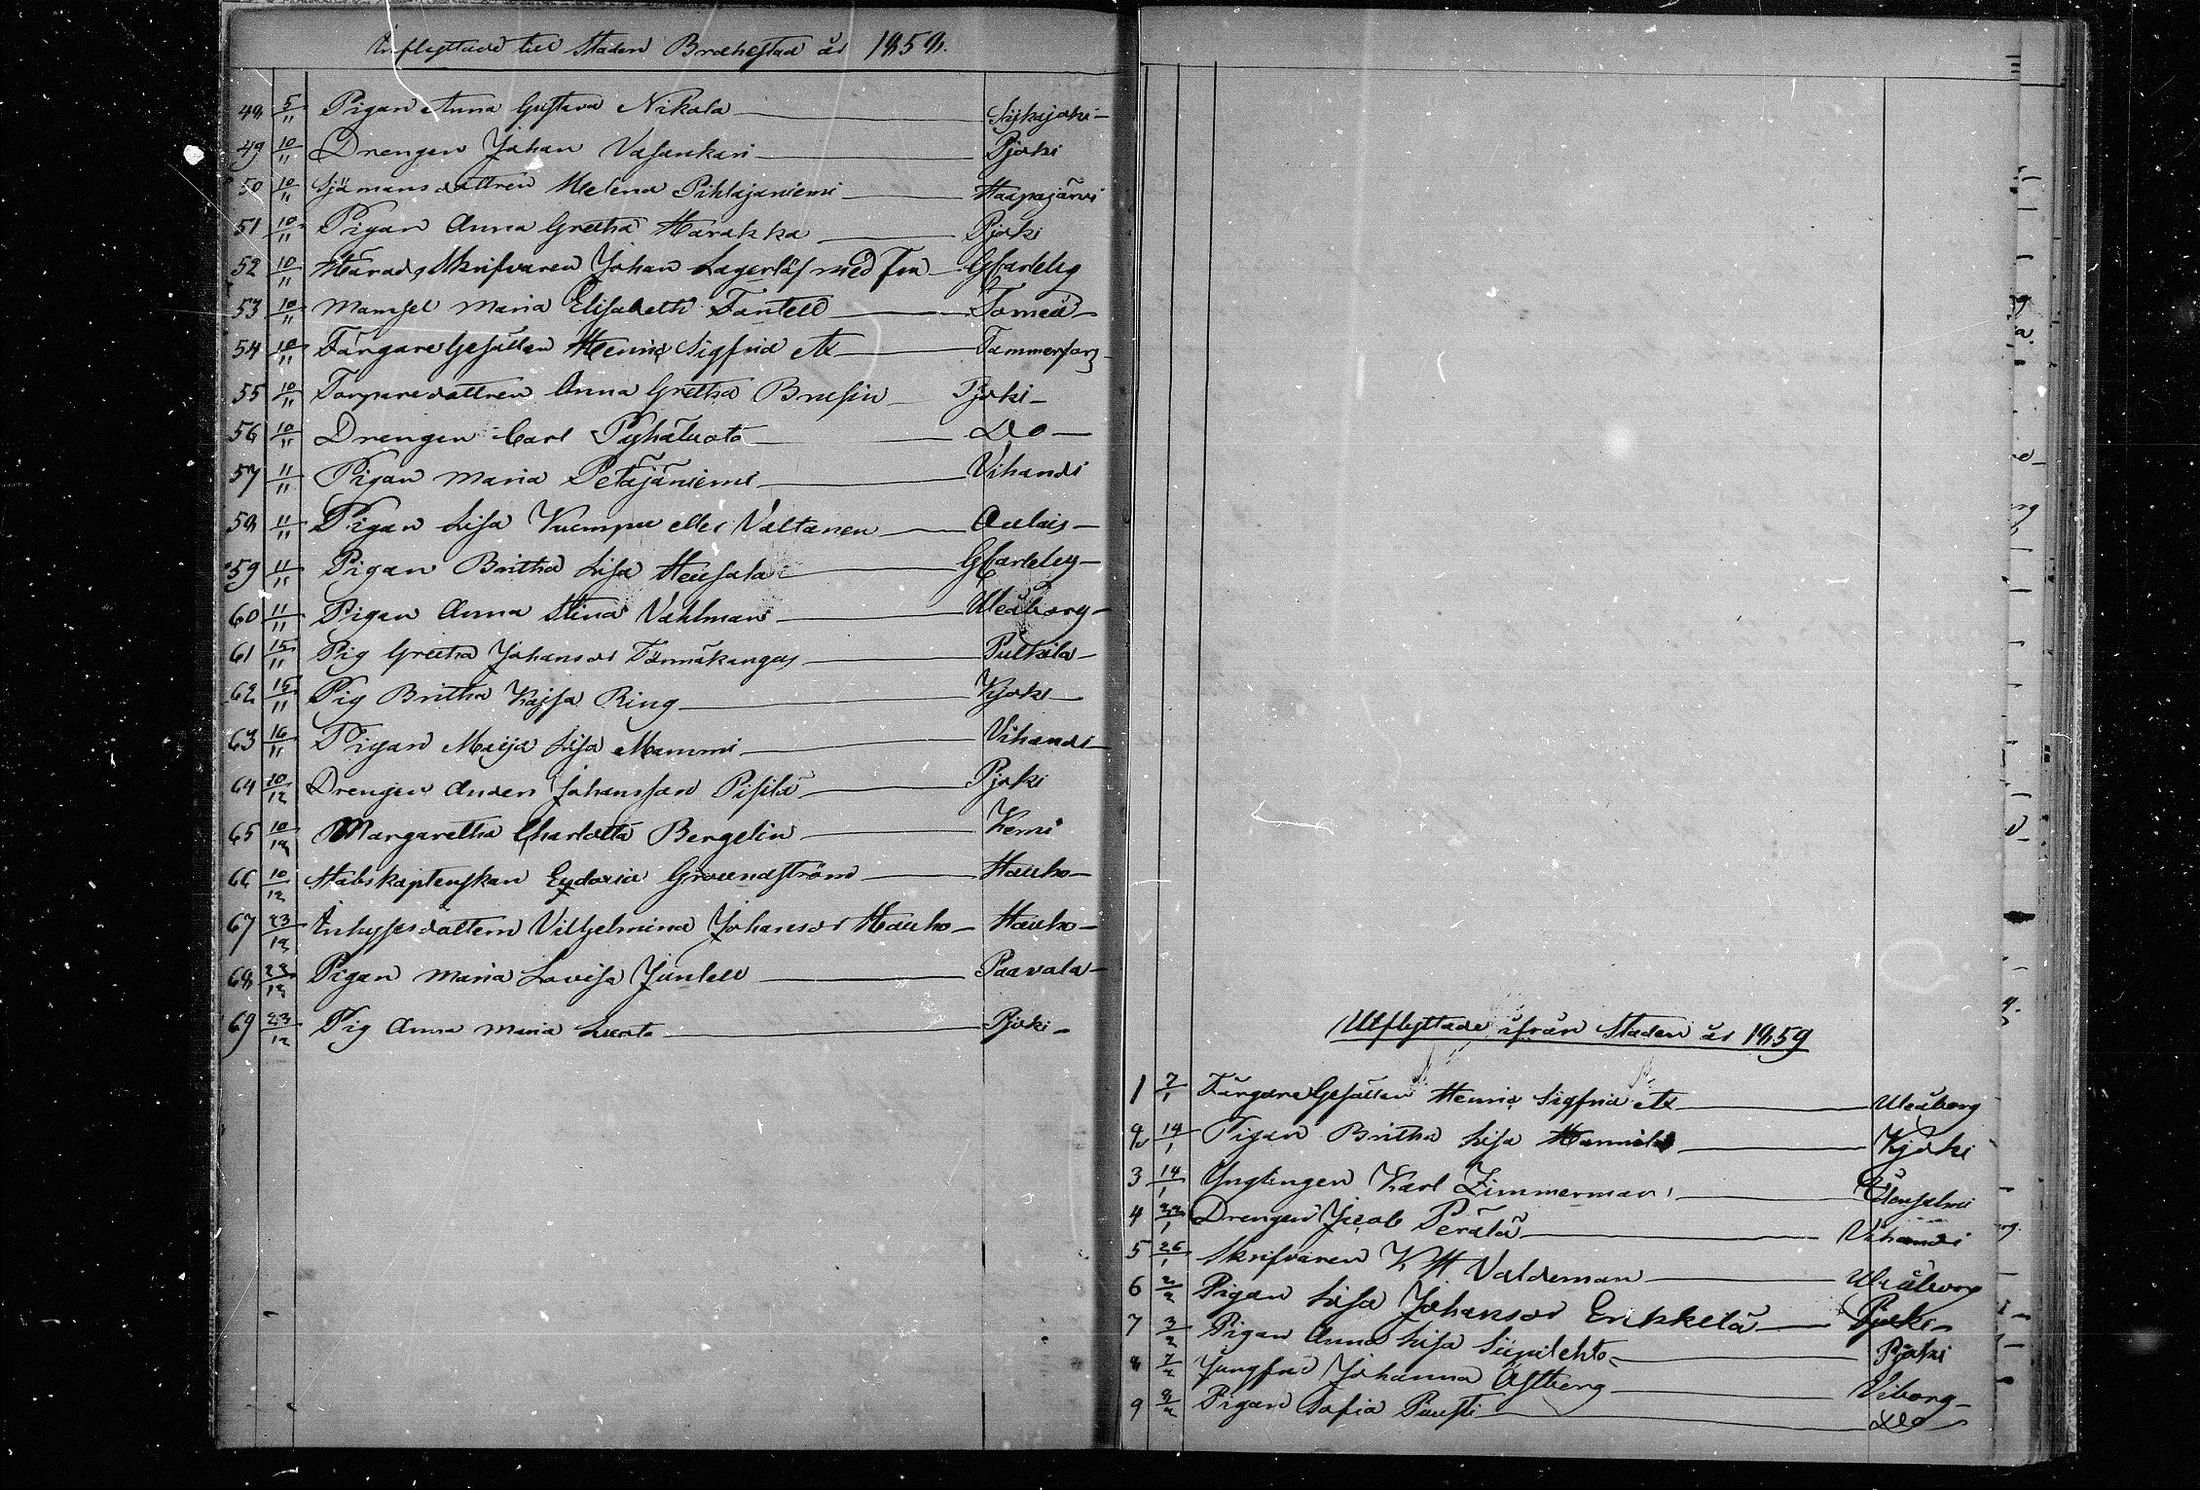 Inflyttade till Staden Brahestad år 1858.
48 5/11 Pigan Anna Gustava Nikola Siikajoki
49 10/11 Drengen Johan Vasankari Pjoki
50 10/11 Sjömansdottren Helena Pihlajaniemi Haapajärvi
51 10/11 Pigan Anna Gretha Harakka Pjoki
52 10/11 Härads Skrifvaren Johan Lagerlöf med fru GCarleby
53 10/11 Mamsel Maria Elisabeth Fontell Torneå
54 10/11 Färgare Gesällen Henric Sigfrid Ax Tammerfors
55 10/11 Torparedottren Anna Gretha Brusin Pjoki
56 10/11 Drengen Carl Pyhäluoto Do
57 11/11 Pigan Maria Petäjäniemi Vihandi
58 11/11 Pigan Lisa Kumpu eller Valtanen Oulais
59 11/11 Pigan Britha Lisa Heusala GCarleby
60 11/11 Pigan Anna Stina Vahlman Uleåborg
61 15/11 Pig Gretha Johansdr Törmäkangas Pulkila
62 15/11 Pig Britha Kajsa Ring Kjoki
63 16/11 Pigan Maija Lisa Mammi Vihandi
64 10/12 Drengen Anders Johansson Pisilä Pjoki
65 10/12 Margaretha Charlotta Bergelin Kemi
66 10/12 Stabskaptenskan Eudoxia Groundström Hauho
67 23/12 Inhysesdottern Vilhelmina Johansdr Hauho Hauho
68 23/12 Pigan Maria Lovisa Juntell Paavola
69 23/12 Pig Anna Maria Luoto Pjoki
Utflyttade ifrån Staden år 1859
1 7/1 Färgare Gesällen Henric Sigfrid Ax Uleåborg
2 14/1 Pigan Britha Lisa Hannila Kjoki
3 14/1 Ynglingen Karl Zimmerman Idensalmi
4 22/1 Drengen Jacob Perälä Vihandi
5 26/1 Skrifvaren K H Valdeman Uleåborg
6 2/2 Pigan Lisa Johansdr Erikkilä Pjoki
7 3/2 Pigan Anna Lisa Siipilehto Pjoki
8 7/2 Jungfru Johanna Östberg Viborg
9 8/2 Pigan Sofia Puusti Do